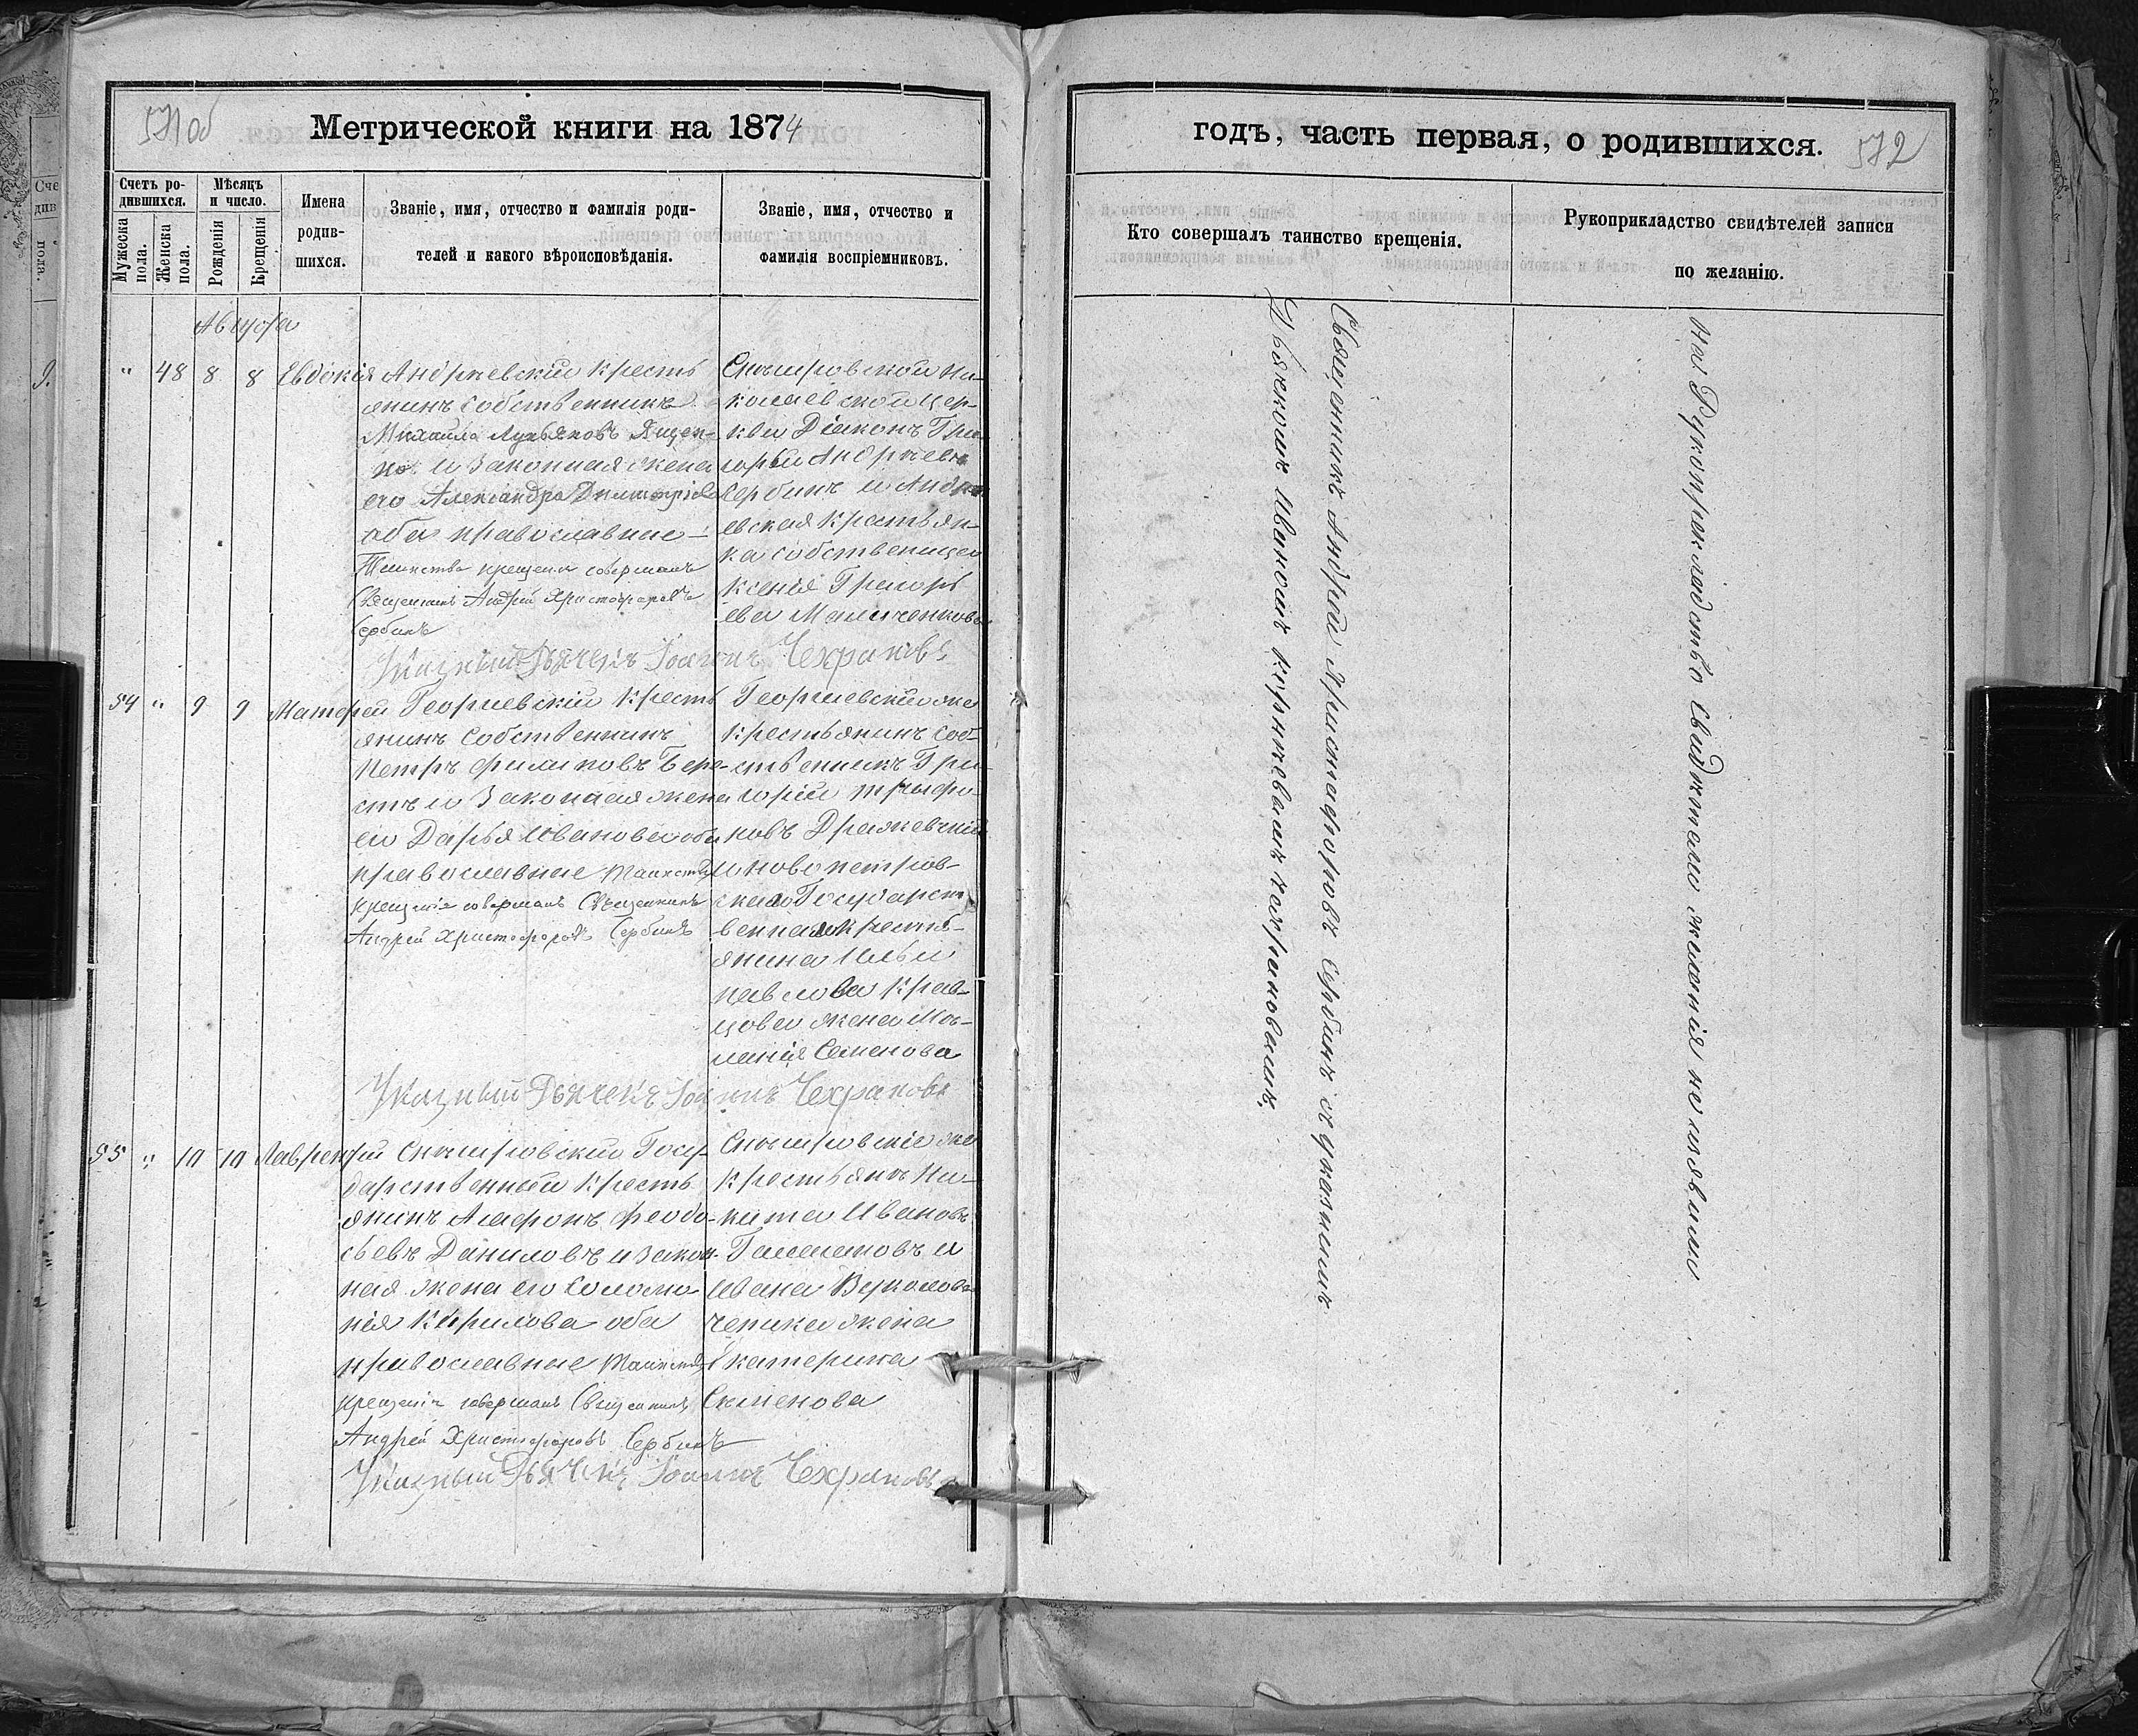 571об
Метрической книги на 1874
Счетъ ро-
дившихся.
Мужеска
пола.
Женска
пола.
Мѣсяцъ
и число.
Рожденія
Крещенія
Имена
родив-
шихся.
Званіе, имя, отчество и фамилія роди-
телей и какого вѣроисповѣданія.
Званіе, имя, отчество и
фамилія воспріемниковъ.
Августа
" 48 8 8 Евдокія
Андреевскій кресть
янинъ собственникъ
Михаила Лукьяновъ Яцен-
ко и законная жена
его Александра Димитріева
оба православные
Таинство крещенія совершалъ
Священникъ Андрей Христофоровъ
Сербинъ
николаевской цер-
кви Діаконъ Гри-
горій Андреевъ
Сербинъ и Андре
евская крестьян-
ка собственница
Ксенія Григорь
ева
Указный Дьячекъ Іоаннъ Чехрановъ
54 " 9 9 Матфей
Георгиевскій кресть
янинъ собственникъ
Петръ Филиповъ Бере-
стъ и законная жена
его Дарья Иванова оба
православные Таинство
крещенія совершалъ Священникъ
Андрей Христофоровъ Сербинъ
Георгиевскій же
крестьянинъ соб-
ственникъ Гри-
горій Трифо-
новъ
и новопетров-
скаго Государст
веннаго кресть-
янина Ильи
Павлова Крав-
цова жена Ме-
ланія Семенова
Указный Дьячекъ Іоаннъ Чехрановъ
55 " 10 10 Лаврентій
Госу-
дарственный кресть
янинъ Агафонъ Феодо-
сьевъ Даниловъ и закон-
ная жена его Соломо-
нія Кирилова оба
православные Таинство
крещенія совершалъ Священникъ
Андрей Христофоровъ Сербинъ
же
крестьянъ Ни-
кита Ивановъ
и
Ивана Вуколова
жена
Екатерина
Семенова
Указный Дьячекъ Іоаннъ Чехрановъ
годъ, часть первая, о родившихся.
572
Кто совершалъ таинство крещенія.
Рукоприкладство свидѣтелей записи
по желанію.
Священникъ Андрей Христофоровъ Сербинъ съ указнымъ
Дьячкомъ Иваномъ Корнѣевымъ Чехрановымъ.
На Рукоприкладство свидѣтели желанія не изъявили